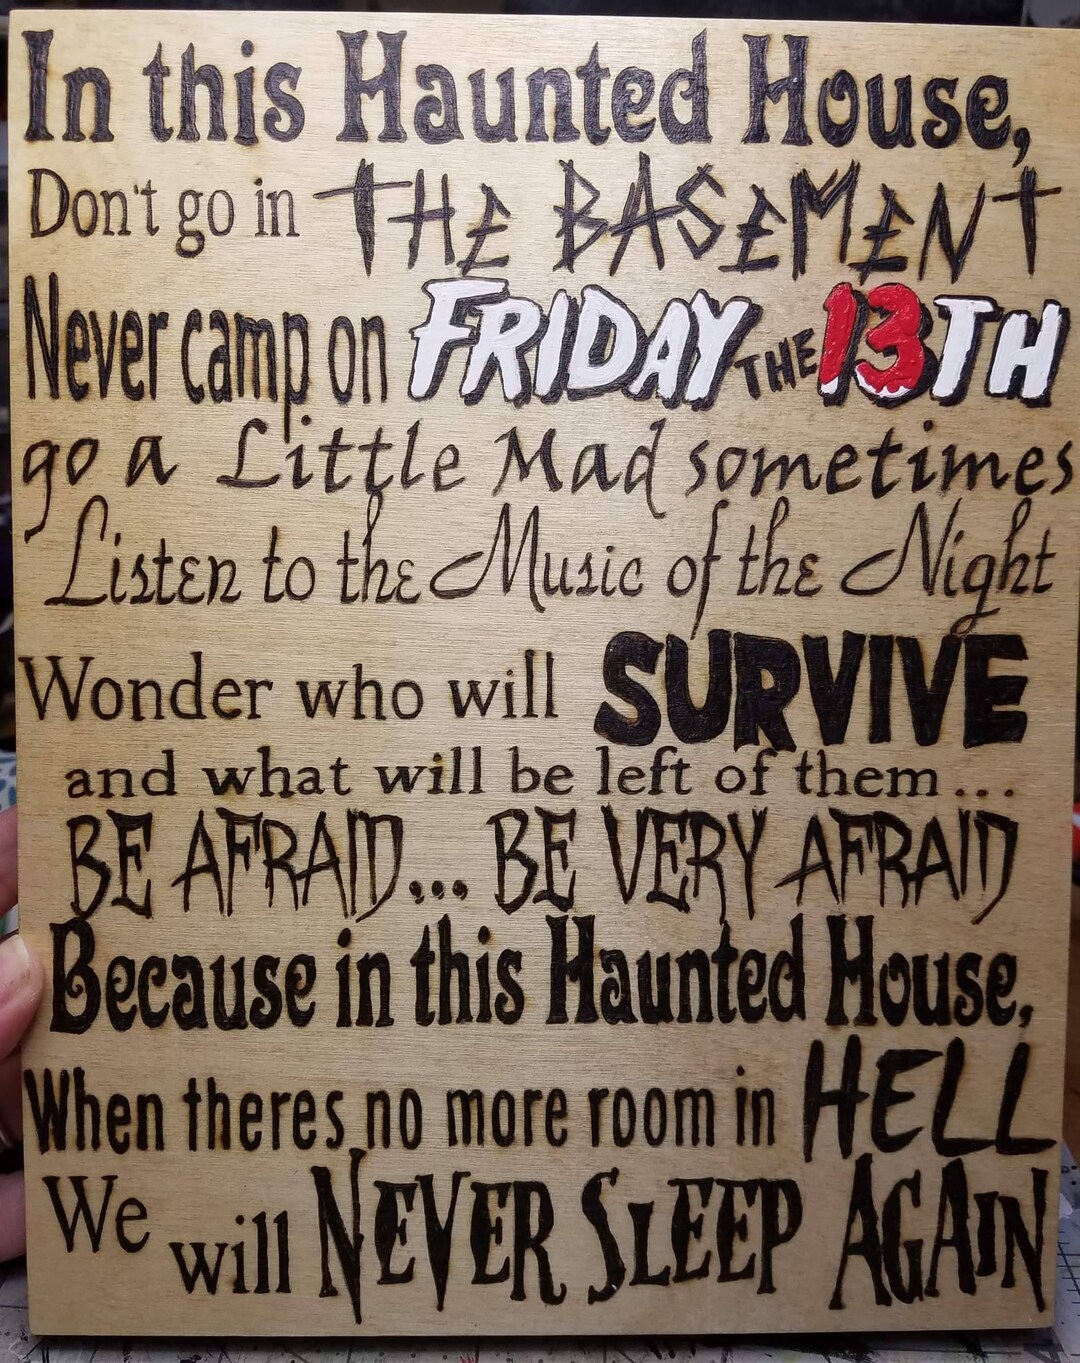 In this Haunted House,
Don't go in THE BASEMENT
Never camp on FRIDAY THE 13TH
go a Little Mad sometimes
Listen to the Music of the Night
Wonder who will SURVIVE
and what will be left of them...
BE AFRAID... BE VERY AFRAID
Because in this Haunted House,
When theres no more room in HELL
We will NEVER SLEEP AGAIN